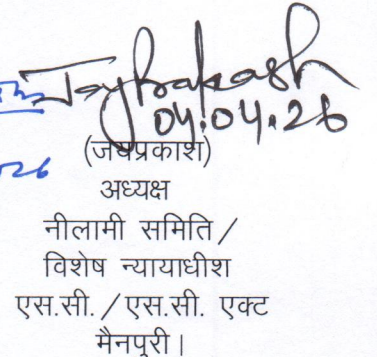 Jayprakash
04.04.26
(जयप्रकाश)
अध्यक्ष
नीलामी समिति /
विशेष न्यायाधीश
एस.सी. / एस.सी. एक्ट
मैनपुरी।